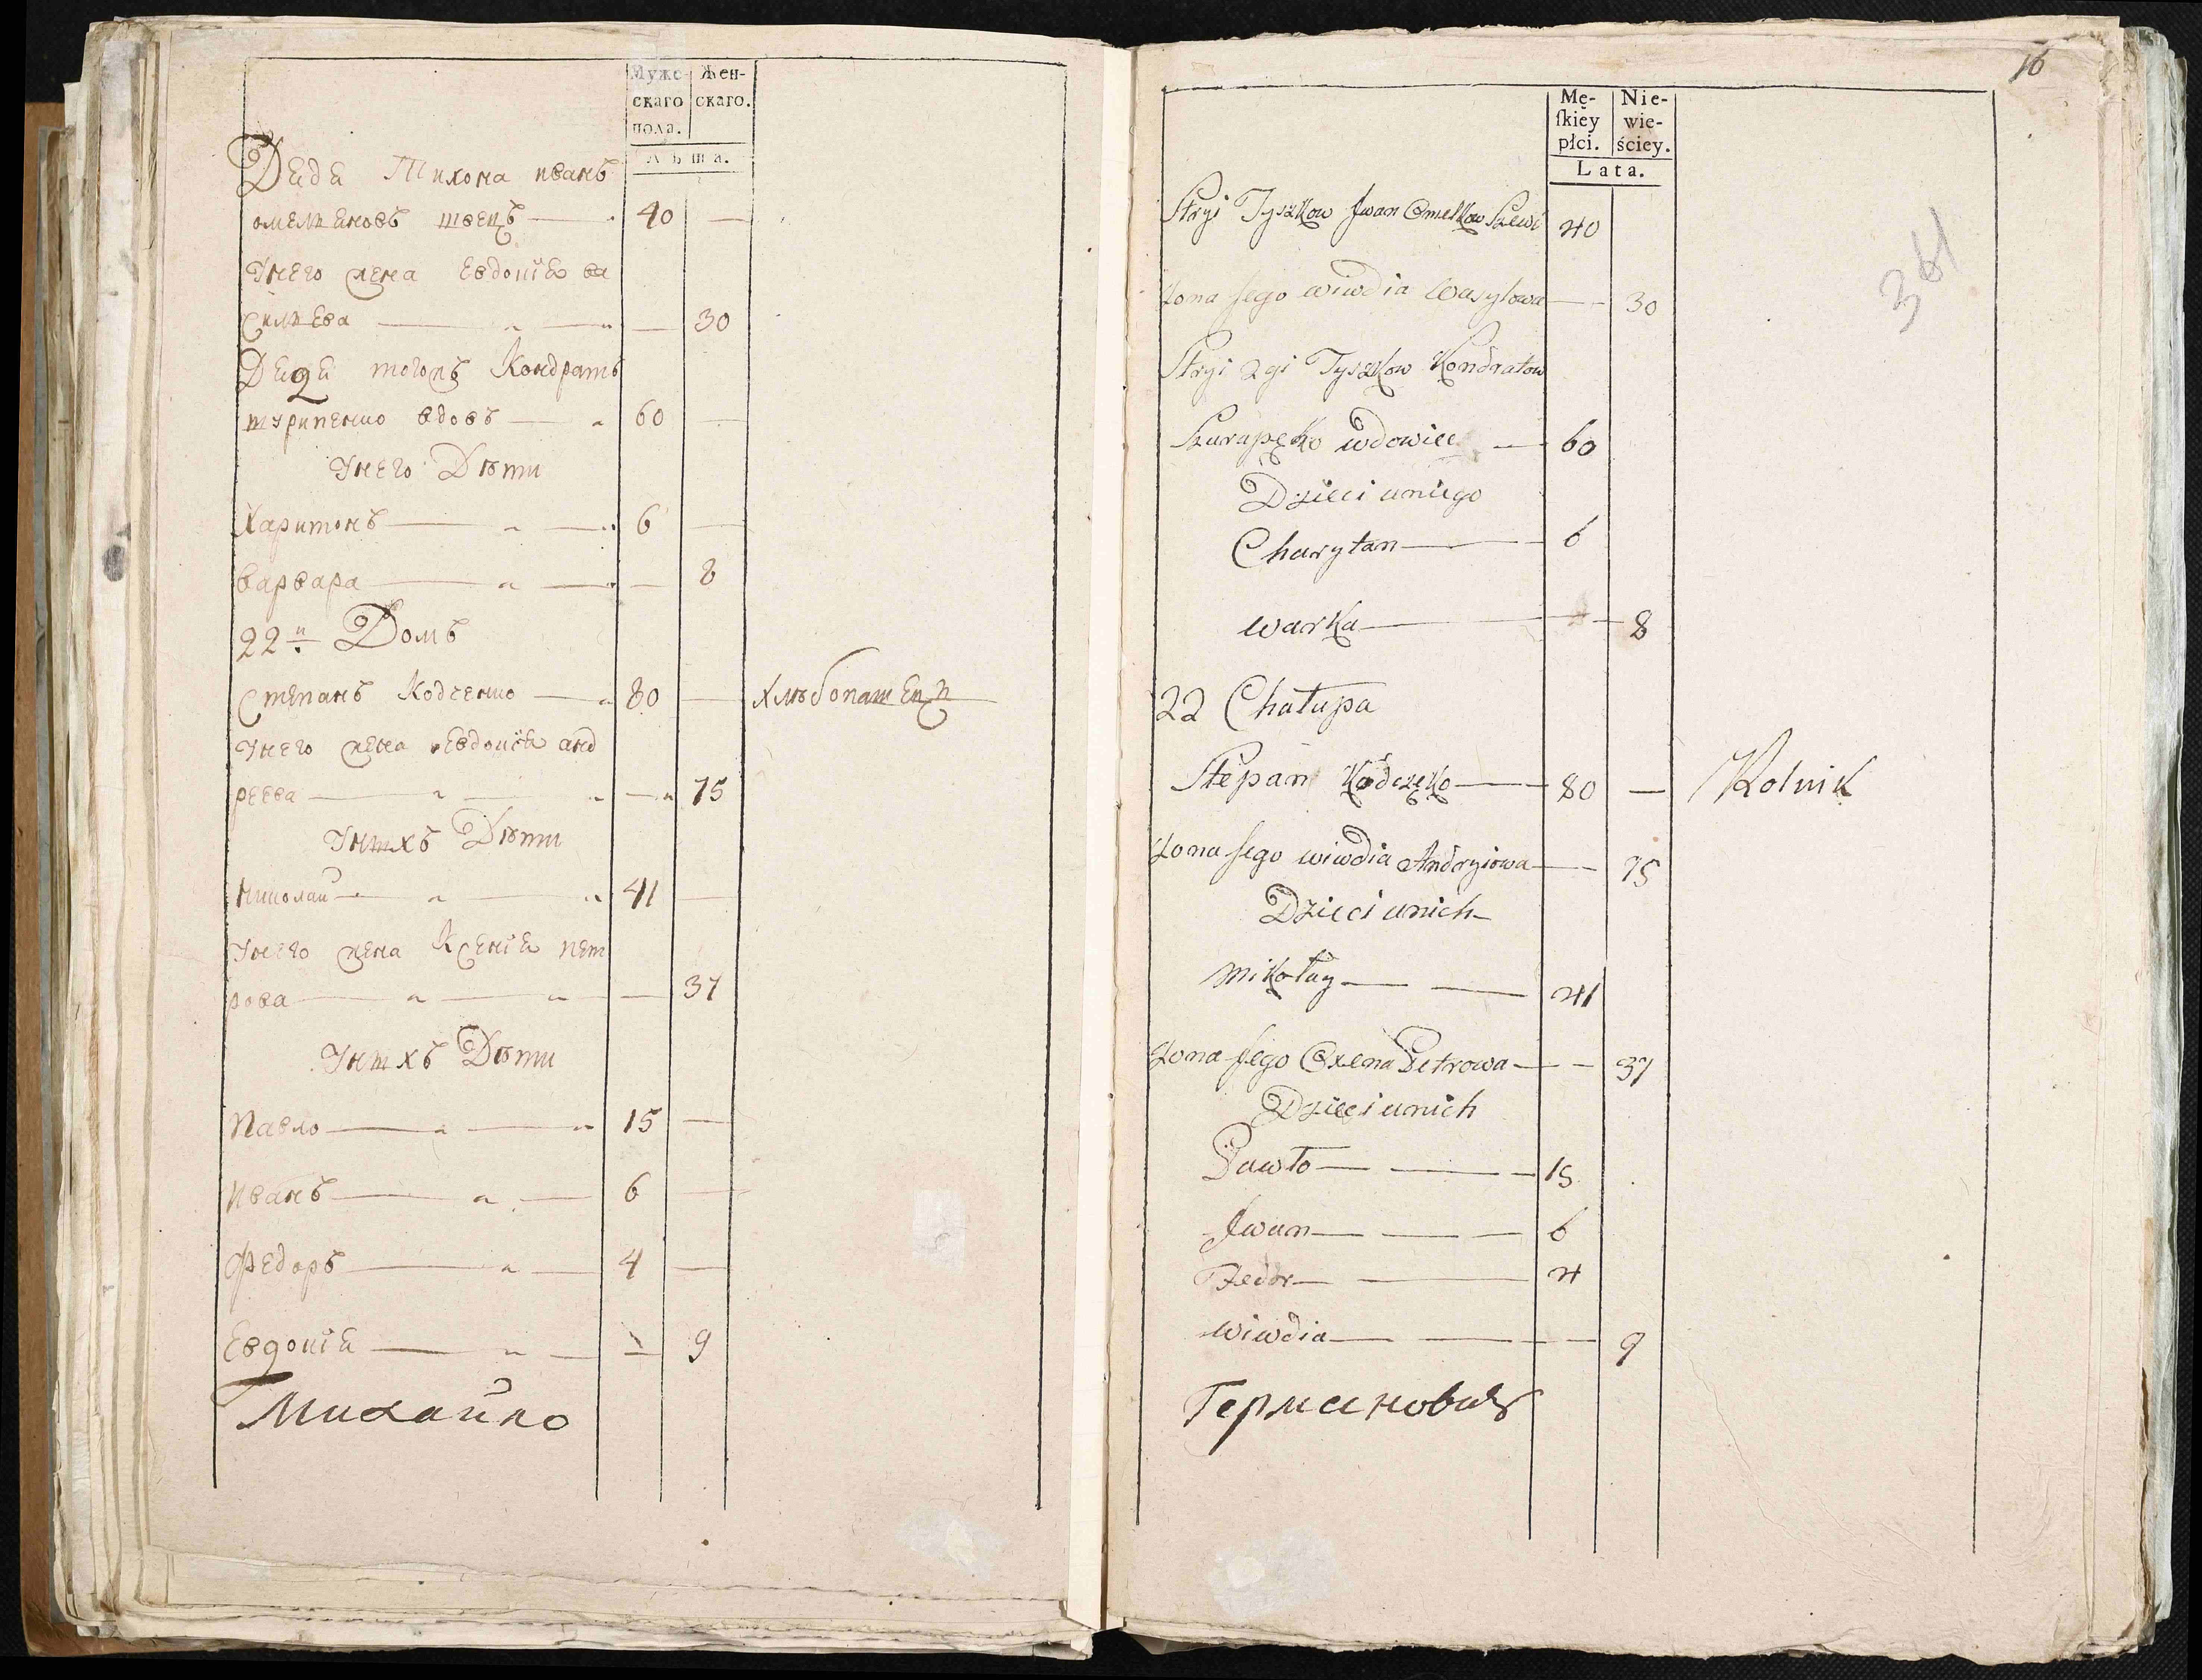 Муже-
скаго
пола.
Жен-
скаго.
Лѣта.
Дядя Тихона иванъ
омельяновъ швецъ 40 —
Унего жена Евдокія ва
сильева — 30
Дядя тогожъ Кондратъ
шурпенко вдовъ 60 —
Унего Дѣти
Харитонъ 6 —
варвара — 8
22й Домъ
Степанъ Кодченко 80 — хлѣбопашецъ
Унего жена Евдокія анд
реева — 75
Унихъ Дѣти
николай 41 —
Унего жена Ксенія пет
рова — 37
Унихъ Дѣти
Павло 15 —
иванъ 6 —
Федоръ 4 —
Евдокія — 9
Михайло
16
361
Mę-
ſkiey
płci.
Nie-
wie-
ściey.
Lata.
Stryi Tyszkow Jwan Omelkow Szewc 40
żona jego wiwdia Wasylowa — 30
Stryi 2gi Tyszkow Kondratow
Szurupęko wdowiec 60
Dzieci uniego
Charytan 6
warka — 8
22 Chałupa
Stepan Kodczęko 80 — Rolnik
żona jego wiwdia Andryiowa — 75
Dzieci unich
mikołay 41
żona jego Oxena Petrowa — 37
Dzieci unich
Pawło 15
Jwan 6
Fedor 4
wiwdia — 9
Германовичъ